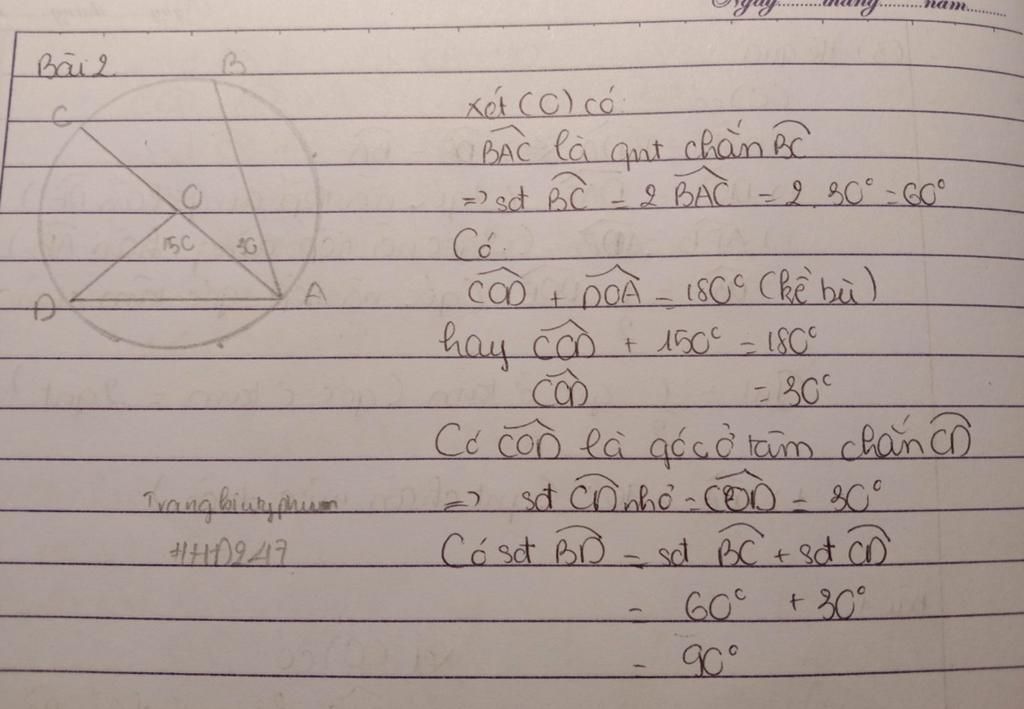 Ngày.........tháng.........năm.........
Bài 2
B
C
O
150
30
D
A
xét (O) có:
BAC là gnt chắn BC
=> sđ BC = 2 BAC = 2. 30° = 60°
Có:
COD + DOA = 180° (kề bù)
hay COD + 150° = 180°
COD = 30°
Có COD là góc ở tâm chắn CD
=> sđ CD nhỏ = COD = 30°
Có sđ BD = sđ BC + sđ CD
= 60° + 30°
= 90°
HHD247